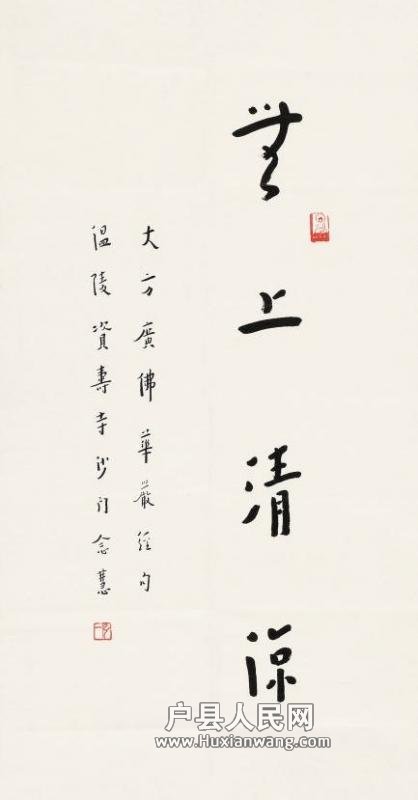 無上清涼
大方廣佛華嚴經句
温陵資壽寺沙門念慧
户县人民网
www.Huxianwang.com